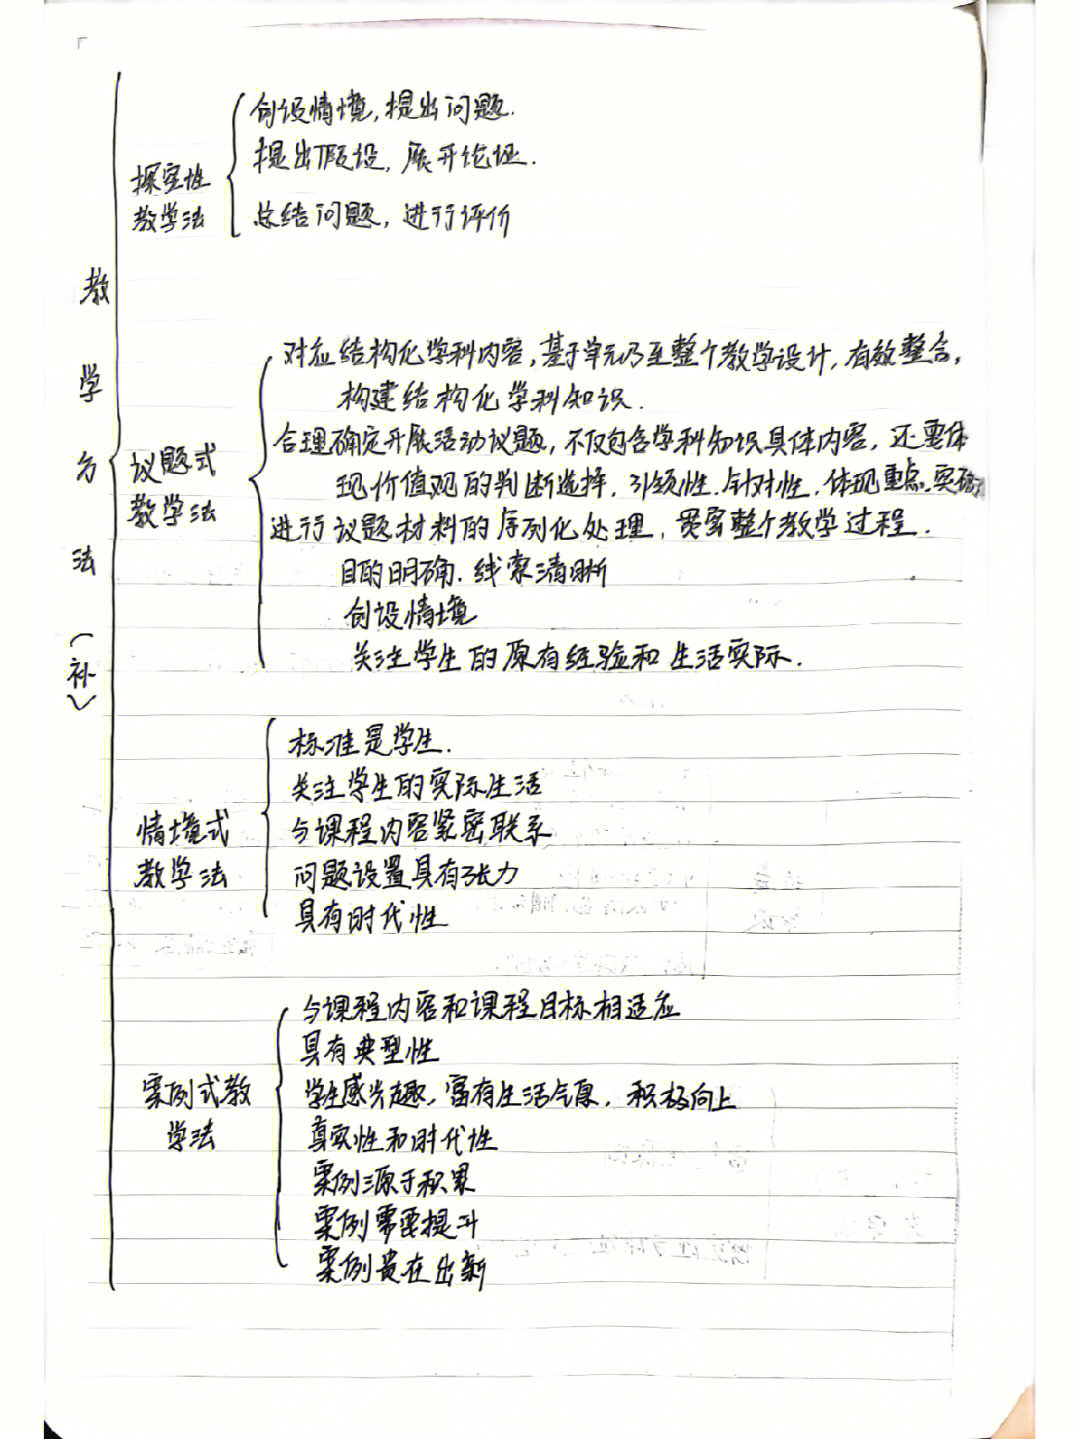 教学方法（补）
探究性
教学法
创设情境,提出问题.
提出假设,展开论证.
总结问题,进行评价
议题式
教学法
对应结构化学科内容,基于单元乃至整个教学设计,有效整合,
构建结构化学科知识.
合理确定开展活动议题,不仅包含学科知识具体内容,还需体
现价值观的判断选择,引领性.针对性.体现重点.实确
进行议题材料的序列化处理,贯穿整个教学过程.
目的明确.线索清晰
创设情境
关注学生的原有经验和生活实际.
情境式
教学法
标准是学生.
关注学生的实际生活
与课程内容紧密联系
问题设置具有张力
具有时代性
案例式教
学法
与课程内容和课程目标相适应
具有典型性
学生感兴趣,富有生活气息,积极向上
真实性和时代性
案例源于积累
案例需要提升
案例贵在出新